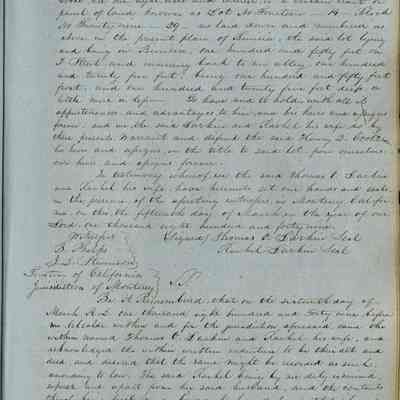 parcel of land known as Lot No Fourteen 14 Block
No Twenty nine 29 as laid down and numbered as
above in the present plan of Benicia, the said lot lying
and being on Benicia, one hundred and fifty feet on
I Street and running back to an alley, one hundred
and twenty five feet, being one hundred and fifty feet
front, and one hundred and twenty five feet deep, a
little more or less. To have and to hold with all it
appurtenances and advantages to him, and his heirs and assigns
forever, and we the said Larkin and Rachel his wife do by
these presents warrant and defend the said Henry D. Cooke
his heirs and assigns, in the title to said lot, from ourselves
our heirs and assigns forever.
In testimony whereof we the said Thomas O. Larkin
and Rachel his wife, have hereunto set our hands and seals
in the presence of the subscribing witnesses in Monterey Califor
nia, on this the fifteenth day of March in the year of our
Lord, one thousand eight hundred and forty nine.
Witnesses (Signed) Thomas O. Larkin Seal
Rachel Larkin Seal
Territory of California
Jurisdiction of Monterey
Be it Remembered, that on the sixteenth day of
March A.D. one thousand eight hundred and Forty nine before
me Alcalde within and for the jurisdiction aforesaid came the
within named Thomas O. Larkin and Rachel his wife, and
acknowledged the within written indenture to be their act and
deed, and desired that the same might be recorded as such,
according to law. The said Rachel being by me duly examined
separate and apart from her said husband, and the contents